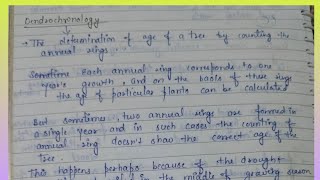 Dendrochronology
→ The determination of age of a tree by counting the
annual rings
Sometime Each annual ring corresponds to one
year's growth, and on the basis of these rings
the age of particular plants can be calculated
But sometimes two annual rings are formed in
a single year and in such cases the counting of
annual ring doesn't show the correct age of the
tree.
This happens perhaps because of the drought
in the middle of growing season